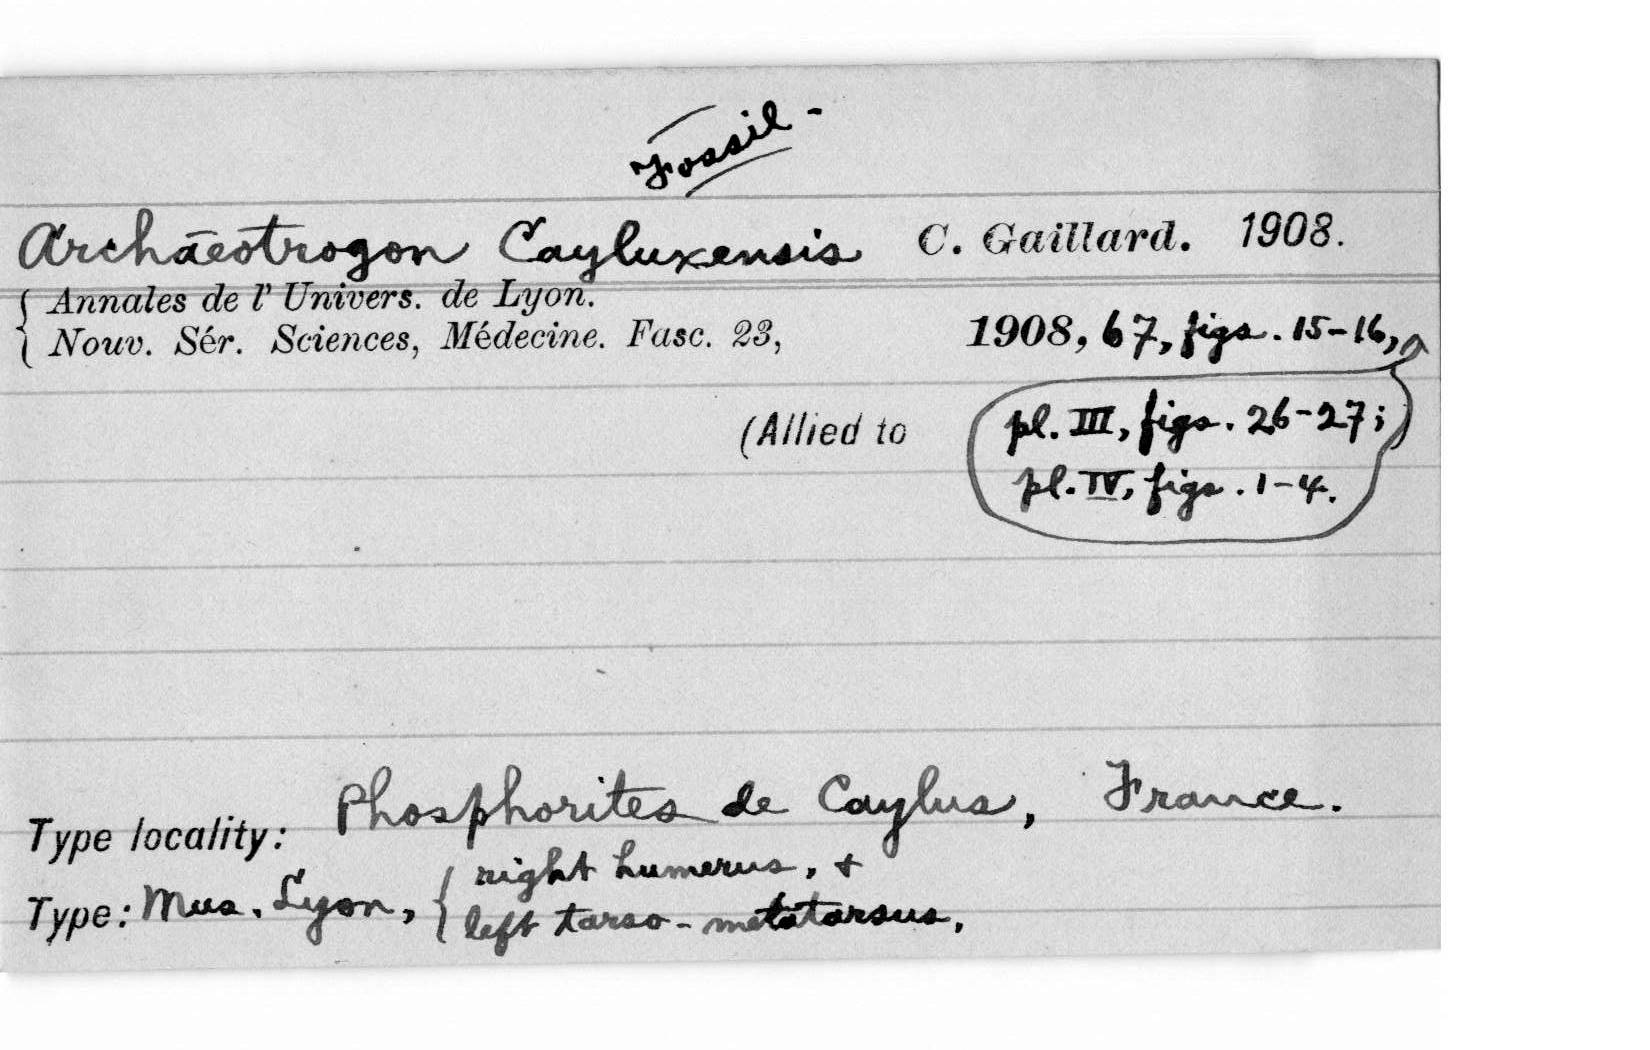 Fossil -
Archaeotrogon Cayluxensis C. Gaillard. 1908.
{ Annales de l' Univers. de Lyon.
{ Nouv. Sér. Sciences, Médecine. Fasc. 23, 1908, 67, figs. 15-16, ^
(Allied to pl. III, figs. 26-27; )
pl. IV, figs. 1-4.
Type locality: Phosphorites de Caylus, France.
Type: Mus. Lyon, { right humerus, +
left tarso-metatarsus,